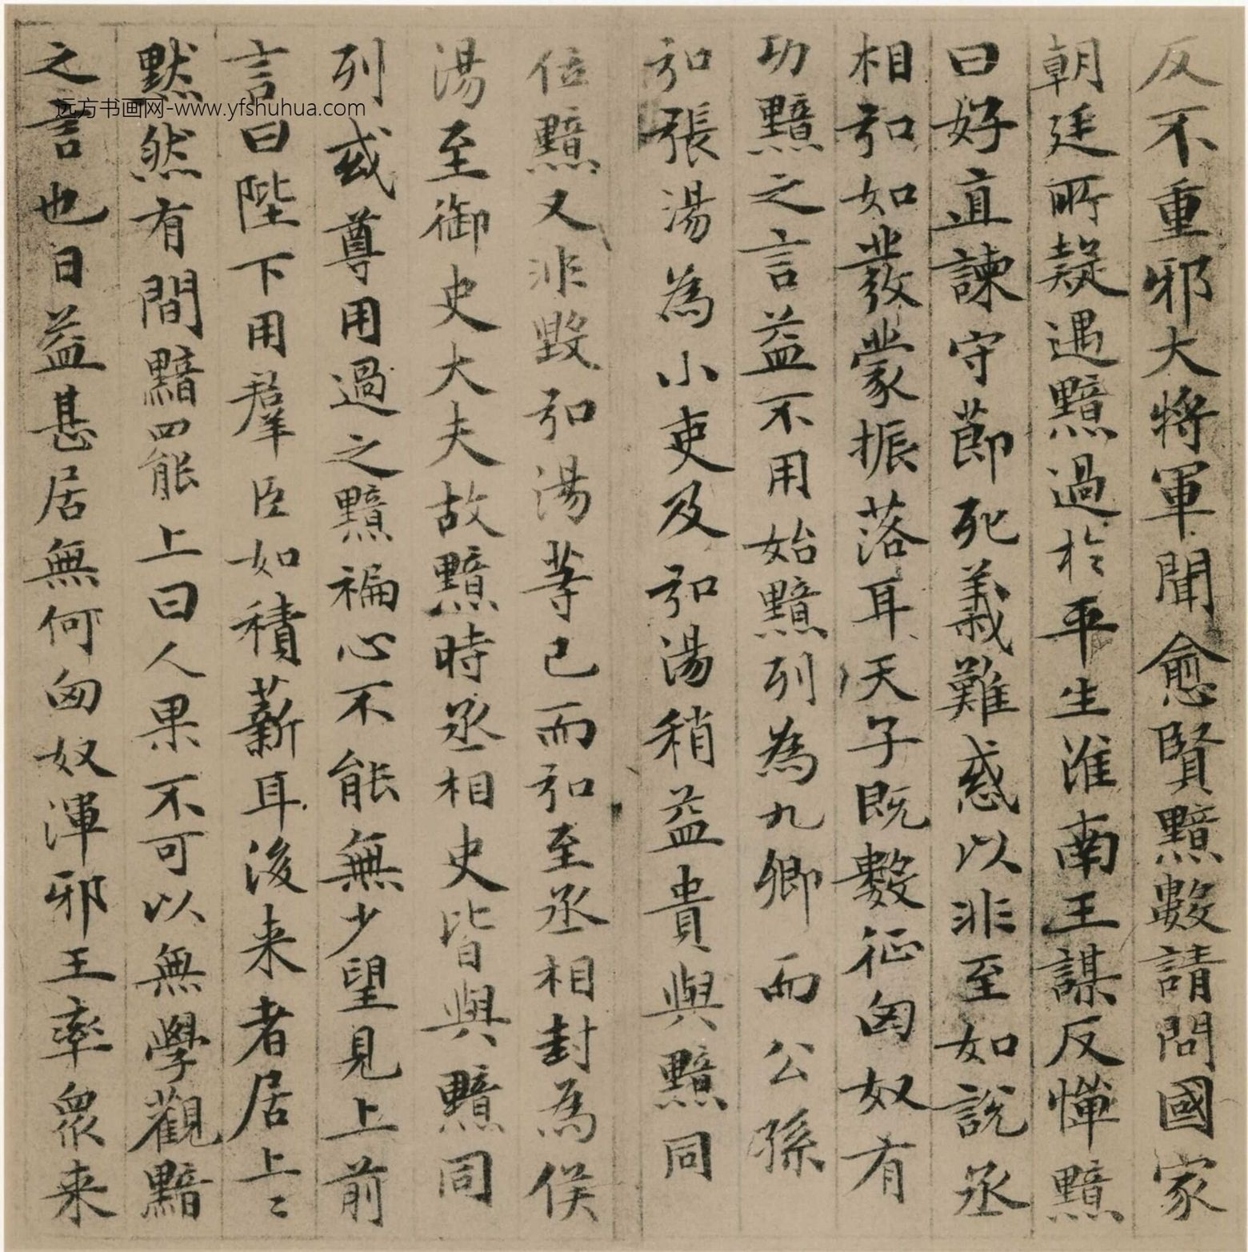 反不重邪大將軍聞愈賢黯數請問國家
朝廷所疑遇黯過於平生淮南王謀反憚黯
曰好直諫守莭死義難惑以非至如說丞
相弘如發蒙振落耳天子既數征匈奴有
功黯之言益不用始黯列為九卿而公孫
弘張湯為小吏及弘湯稍益貴與黯同
位黯又非毀弘湯等已而弘至丞相封為侯
湯至御史大夫故黯時丞相史皆與黯同
列或尊用過之黯褊心不能無少望見上前
言曰陛下用羣臣如積薪耳後来者居上〻
默然有間黯罷上曰人果不可以無學觀黯
之言也日益甚居無何匈奴渾邪王率衆来
远方书画网-www.yfshuhua.com